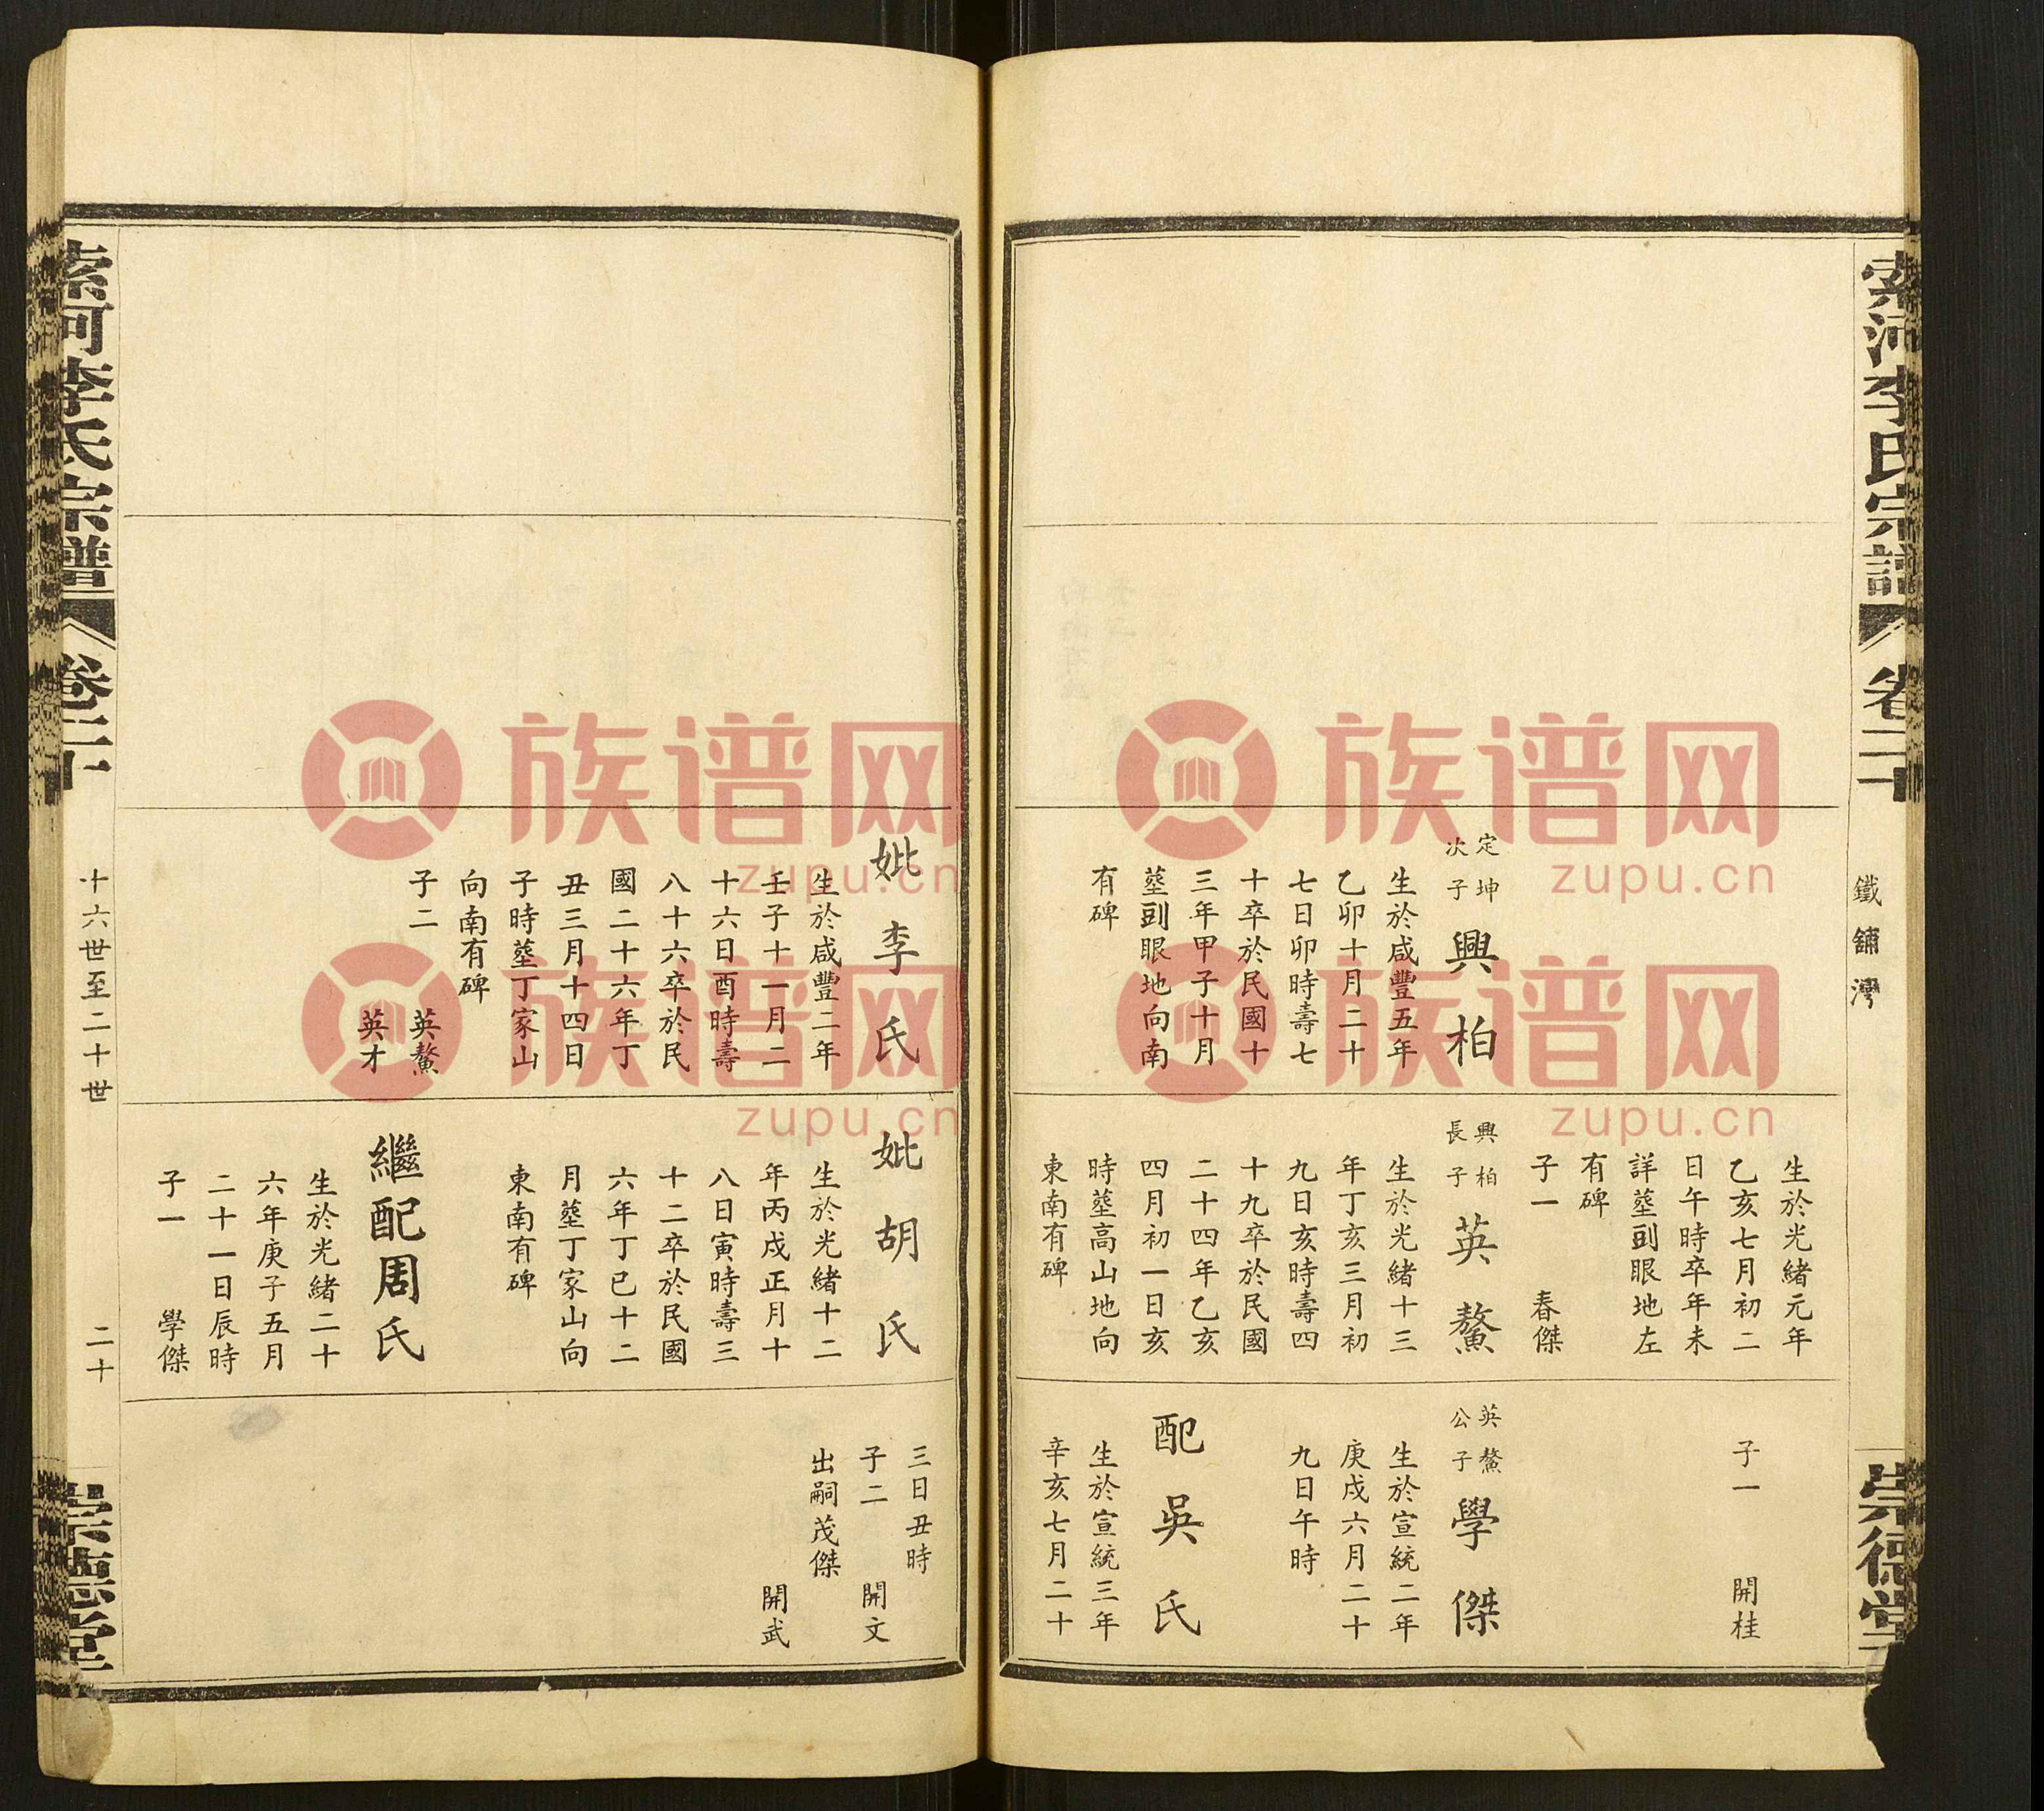 索河李氏宗譜
卷二十
鐵舖灣
崇德堂
定坤
次子
興柏
生於咸豐五年
乙卯十月二十
七日卯時壽七
十卒於民國十
三年甲子十月
塟剅眼地向南
有碑
生於光緒元年
乙亥七月初二
日午時卒年未
詳塟剅眼地左
有碑
子一 春傑
興柏
長子
英鰲
生於光緒十三
年丁亥三月初
九日亥時壽四
十九卒於民國
二十四年乙亥
四月初一日亥
時塟高山地向
東南有碑
子一 開桂
英鰲
公子
學傑
生於宣統二年
庚戌六月二十
九日午時
配吳氏
生於宣統三年
辛亥七月二十
妣李氏
生於咸豐二年
壬子十一月二
十六日酉時壽
八十六卒於民
國二十六年丁
丑三月十四日
子時塟丁家山
向南有碑
子二 英鰲
英才
妣胡氏
生於光緒十二
年丙戌正月十
八日寅時壽三
十二卒於民國
六年丁巳十二
月塟丁家山向
東南有碑
繼配周氏
生於光緒二十
六年庚子五月
二十一日辰時
子一 學傑
三日丑時
子二 開文
出嗣茂傑
開武
索河李氏宗譜
卷二十
十六世至二十世
二十
崇德堂
族谱网
zupu.cn
族谱网
zupu.cn
族谱网
zupu.cn
族谱网
zupu.cn